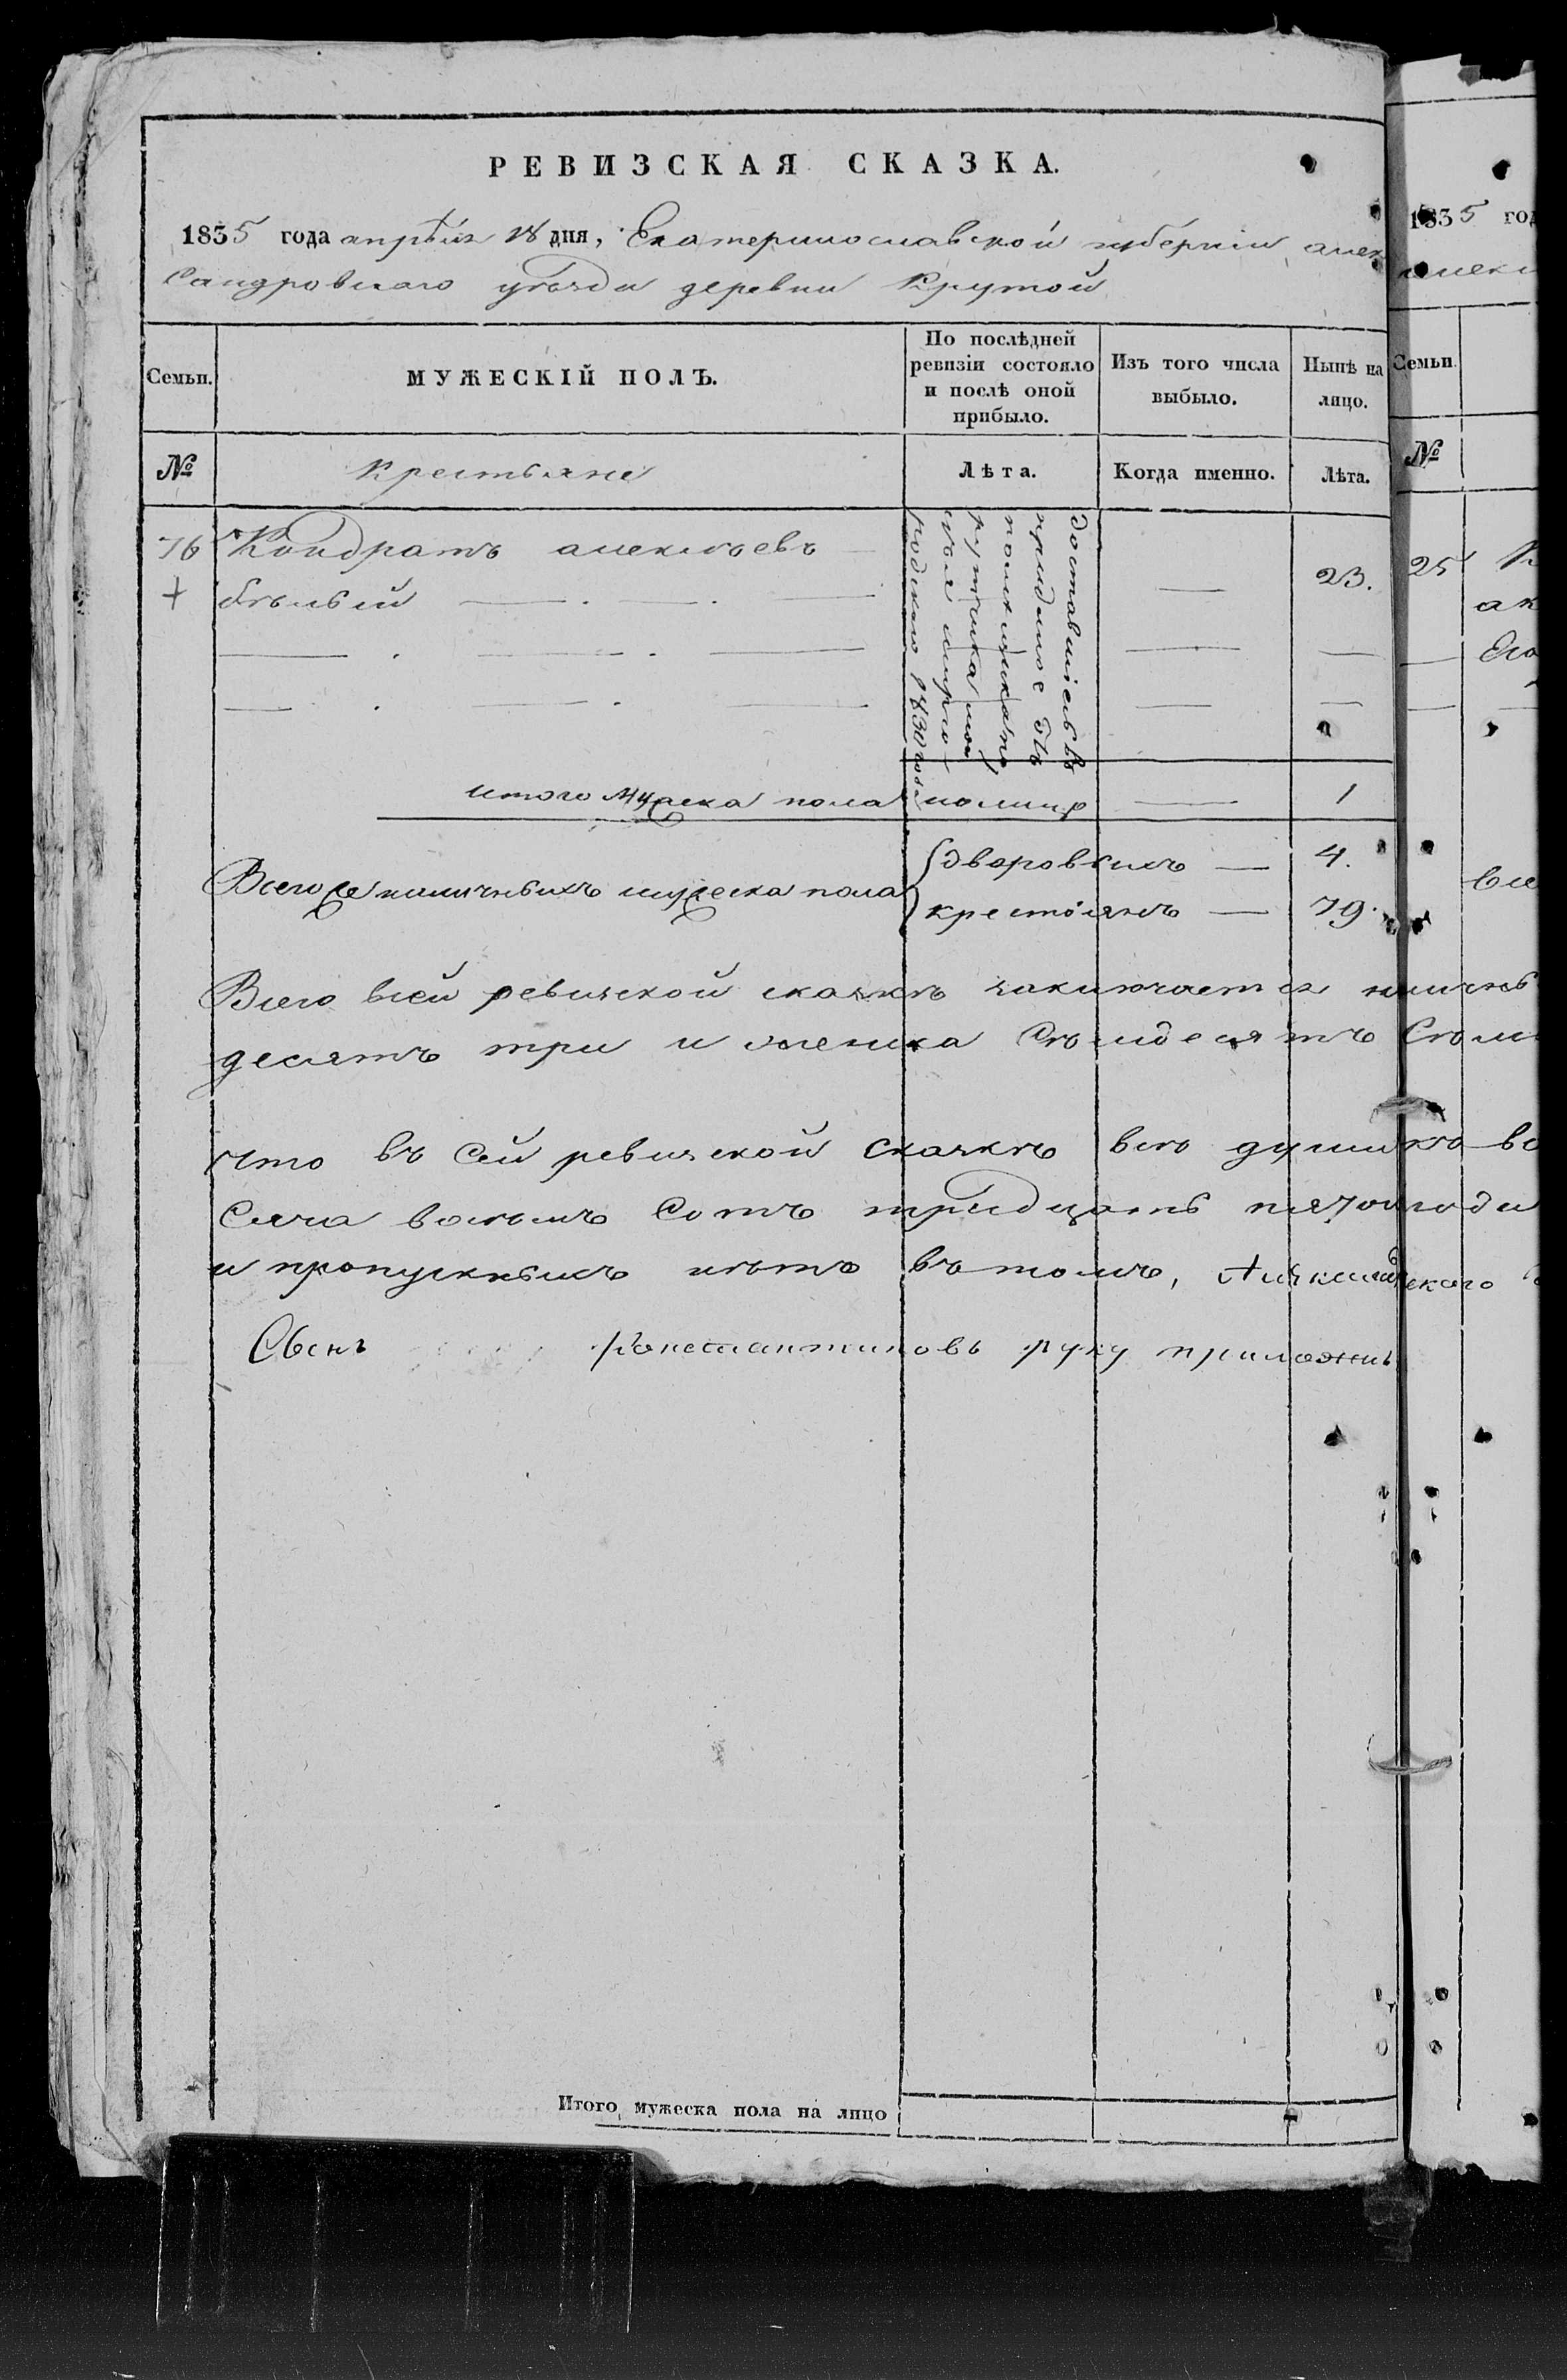 РЕВИЗСКАЯ СКАЗКА.
1835 года апрѣля 18 дня, Екатеринославской губерніи алек
сандровскаго уѣзда деревни Крутой
Семьи.
МУЖЕСКІЙ ПОЛЪ.
По послѣдней ревизіи состояло и послѣ оной прибыло.
Изъ того числа выбыло.
Нынѣ на лицо.
№
крестьяне
Лѣта.
Когда именно.
Лѣта.
76 Кондратъ алексѣевъ
бѣлый — 23.
доставшіесь въ
приданое
помѣщика
родскаго 1830 года
итого мужеска пола — 1
Всего же наличныхъ мужеска пола
дворовыхъ — 4.
крестьянъ — 79.
Всего всей ревизской сказкѣ заключается наличны
десятъ три и женска Сѣмдесятъ Сѣмь
Что въ Сей ревизской Сказкѣ всѣ души къ во
Сяча восѣмъ Сотъ тридцать пятого года
и пропускныхъ нѣтъ въ томъ,
Константиновъ руку приложилъ
Итого мужеска пола на лицо
1835 год
алекса
Семьи
№
25